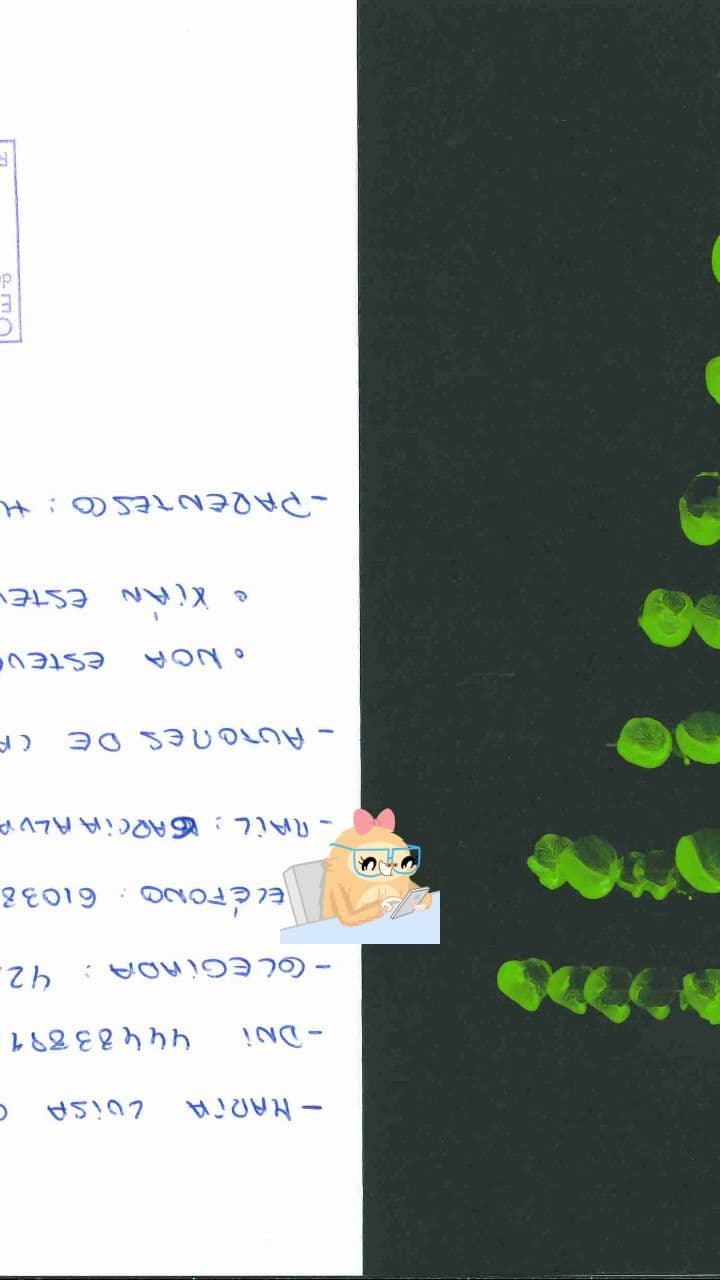 - MARÍA LUISA
- DNI 4448389
- COLEGIADA: 42
ELÉFONO: 61038
- MAIL: GARCIAALVA
- AUTORES DE
• NOA ESTEV
• XIÁN ESTE
- PARENTESCO: